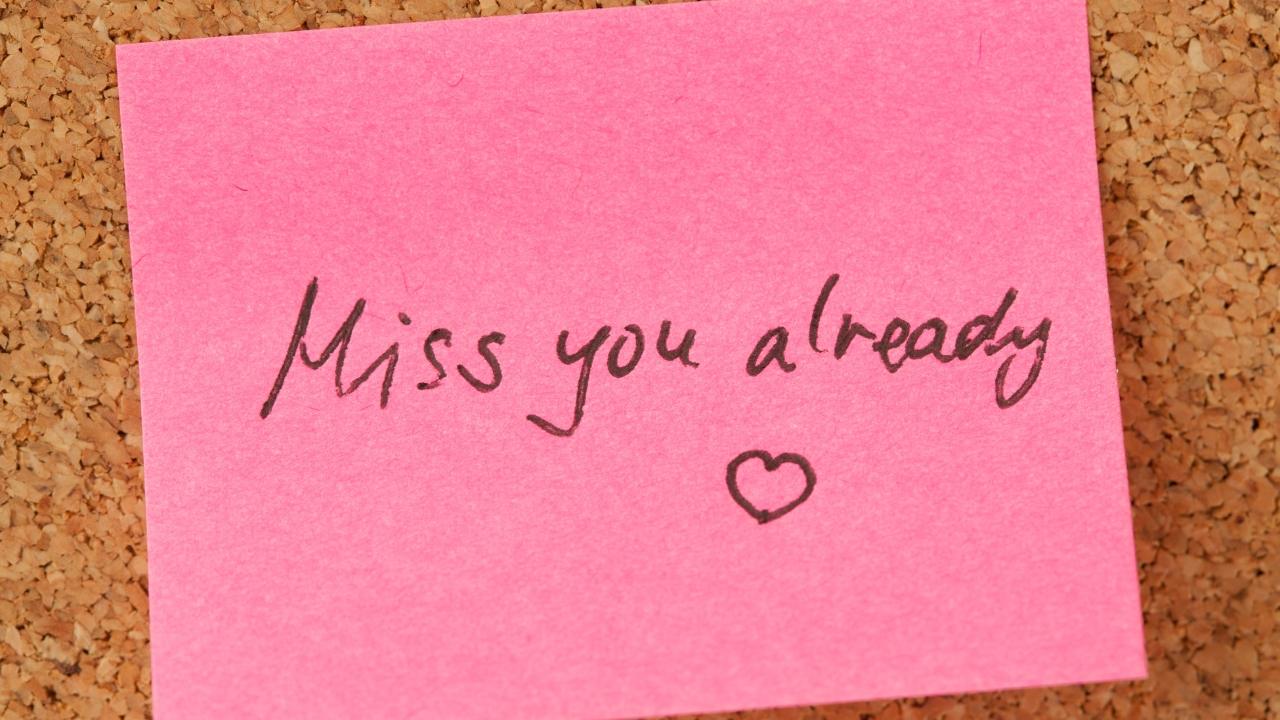 Miss you already
♡